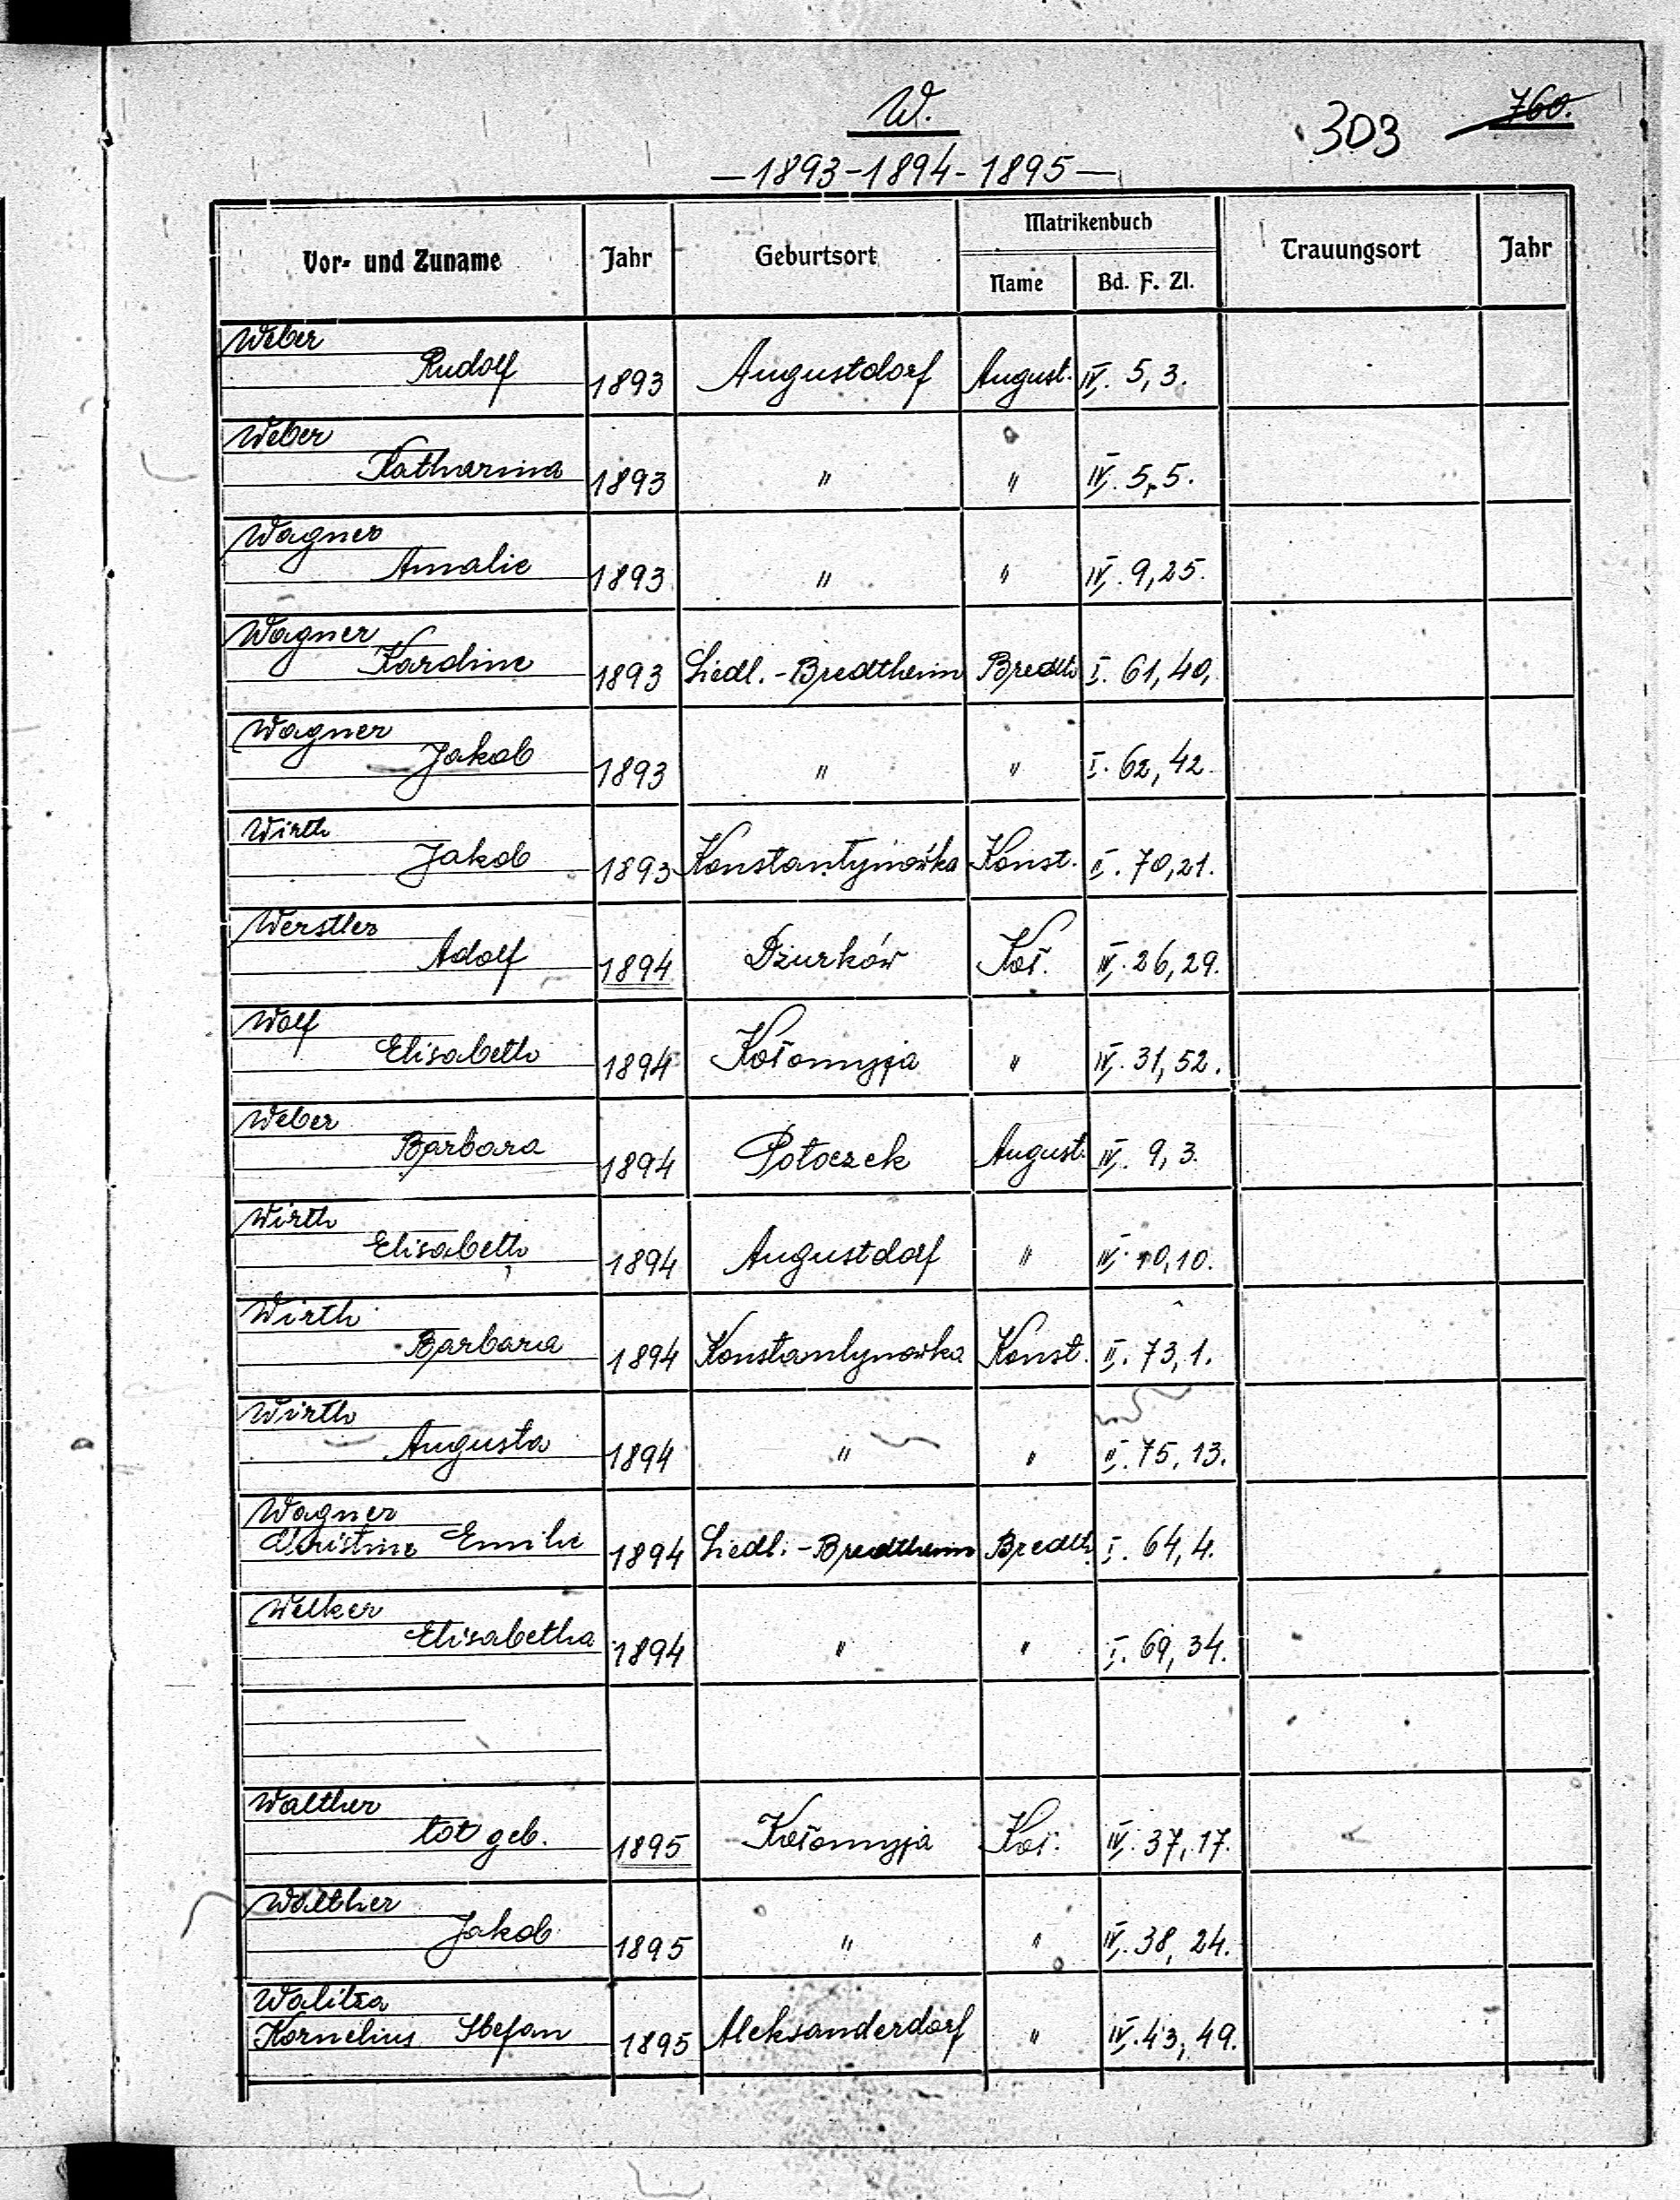 W.
303 760.
—1893-1894-1895—
Vor- und Zuname Jahr Geburtsort Matrikenbuch Trauungsort Jahr
Name Bd. F. Zl.
Weber
Rudolf 1893 Augustdorf August. IV. 5, 3.
Weber
Katharina 1893 " " IV. 5, 5.
Wagner
Amalie 1893 " " IV. 9, 25.
Wagner
Karoline 1893 Siedl.-Bredtheim Bredth I. 61, 40,
Wagner
Jakob 1893 " " I. 62, 42.
Wirth
Jakob 1893 Konstantynówka Konst. II. 70, 21.
Werstler
Adolf 1894 Dżurków Koł. IV. 26, 29.
Wolf
Elisabeth 1894 Kołomyja " IV. 31, 52.
Weber
Barbara 1894 Potoczek August. IV. 9, 3.
Wirth
Elisabeth 1894 Augustdorf " IV. 10, 10.
Wirth
Barbara 1894 Konstantynowka Konst. II. 73, 1.
Wirth
Augusta 1894 " " II. 75, 13.
Wagner
Christine Emilie 1894 Siedl.-Bredtheim Bredth. I. 64, 4.
Welker
Elisabetha 1894 " " I. 69, 34.
Walther
tot geb. 1895 Kołomyja Koł. IV. 37, 17.
Walther
Jakob 1895 " " IV. 38, 24.
Walitza
Kornelius Stefan 1895 Aleksanderdorf " IV. 43, 49.